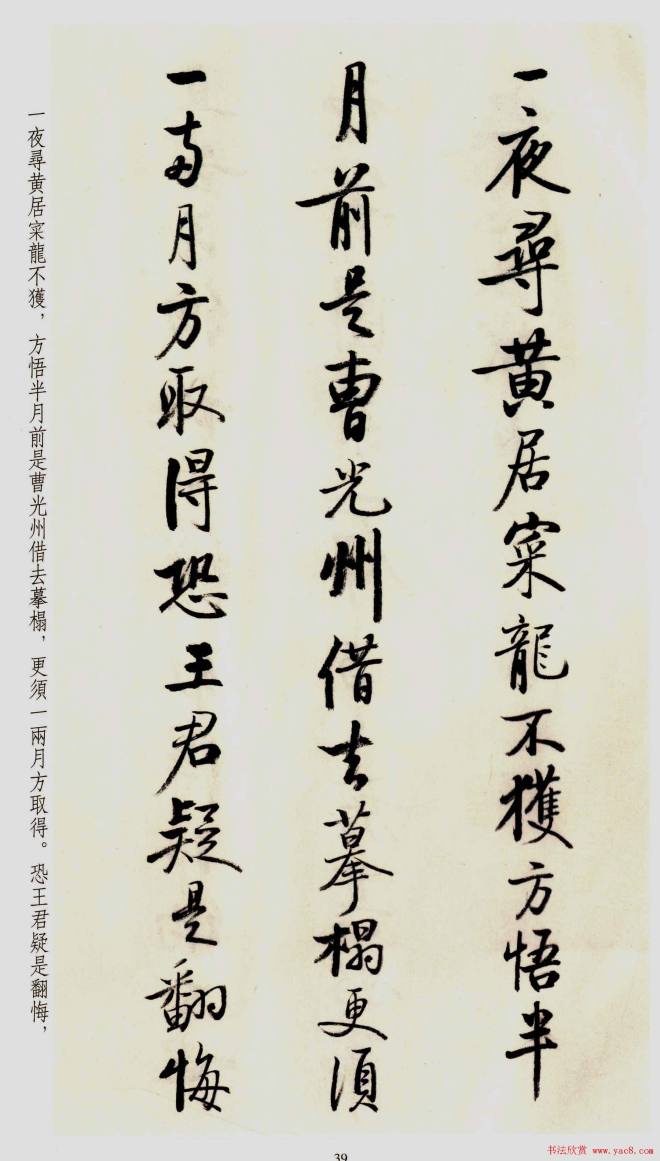 一夜尋黄居寀龍不獲方悟半
月前是曹光州借去摹榻更須
一兩月方取得恐王君疑是翻悔
一夜尋黄居寀龍不獲，方悟半月前是曹光州借去摹榻，更須一兩月方取得。恐王君疑是翻悔，
39
书法欣赏 www.yac8.com